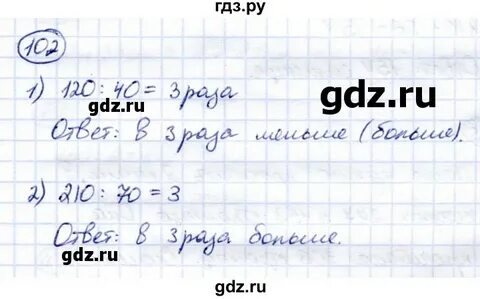 гдз.ру
102
1) 120 : 40 = 3 раза
gdz.ru
gdz.ru
Ответ: в 3 раза меньше (больше).
2) 210 : 70 = 3
Ответ: в 3 раза больше.
gdz.ru
gdz.ru